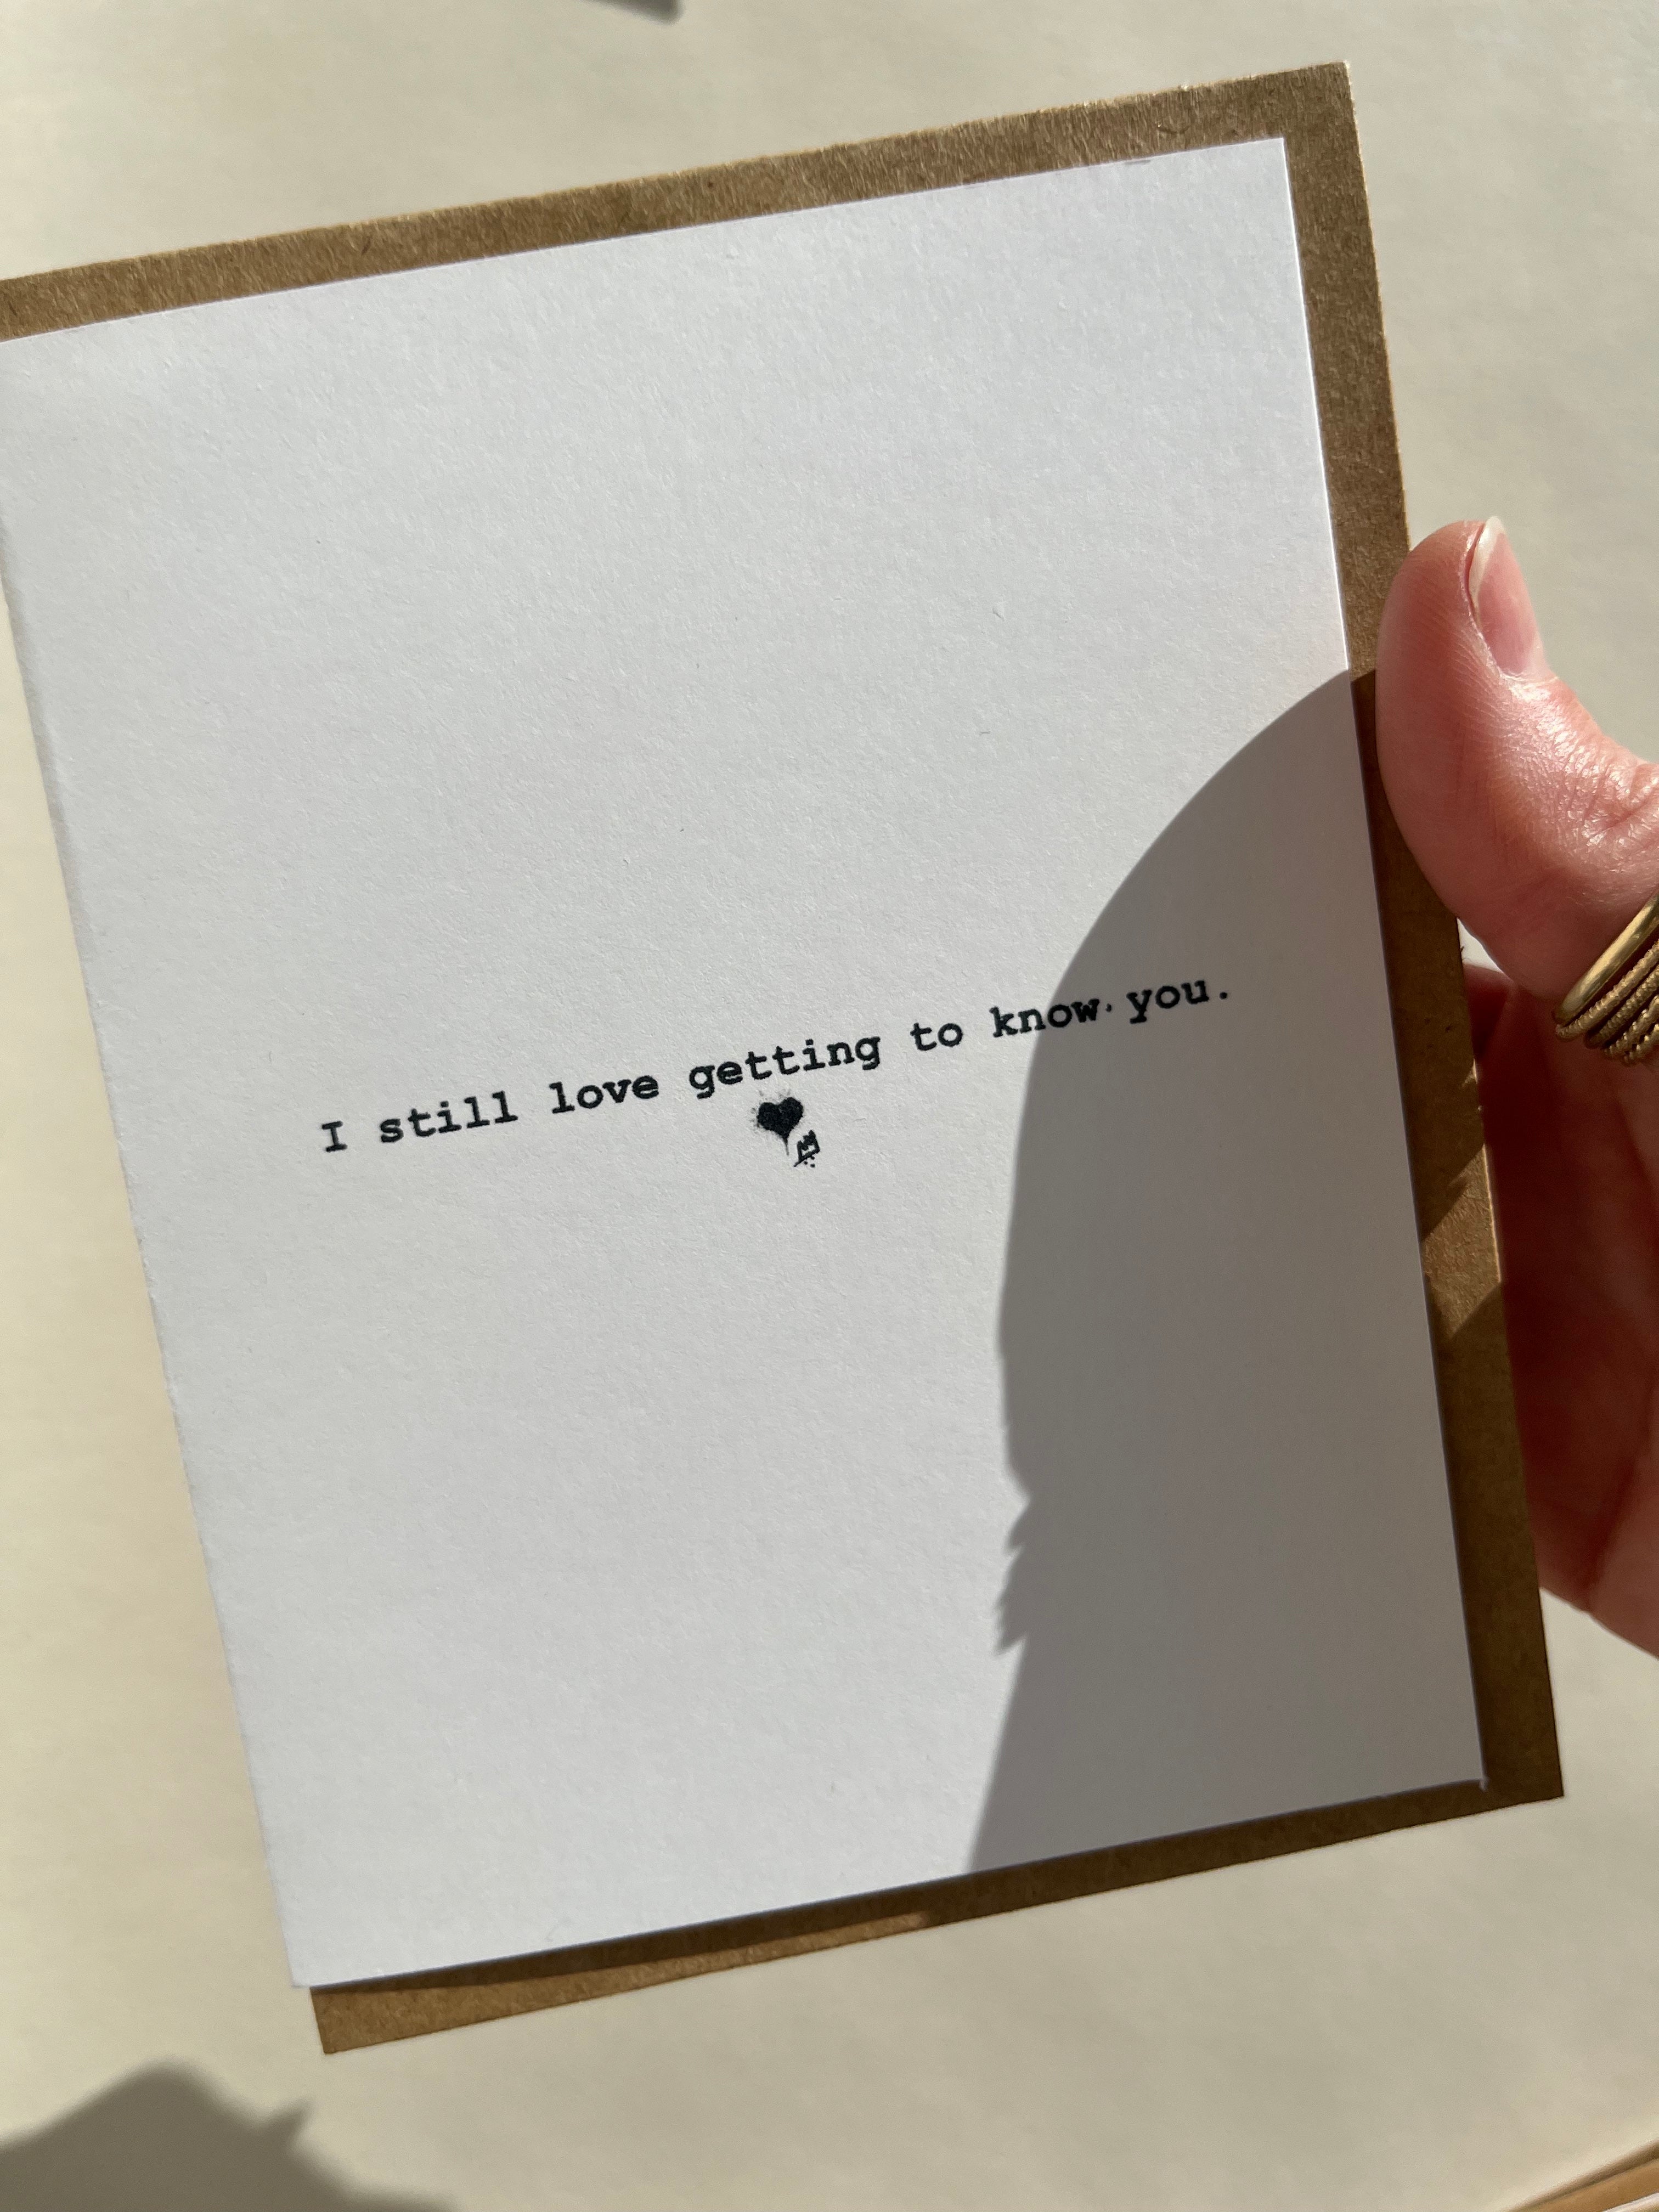 I still love getting to know you.